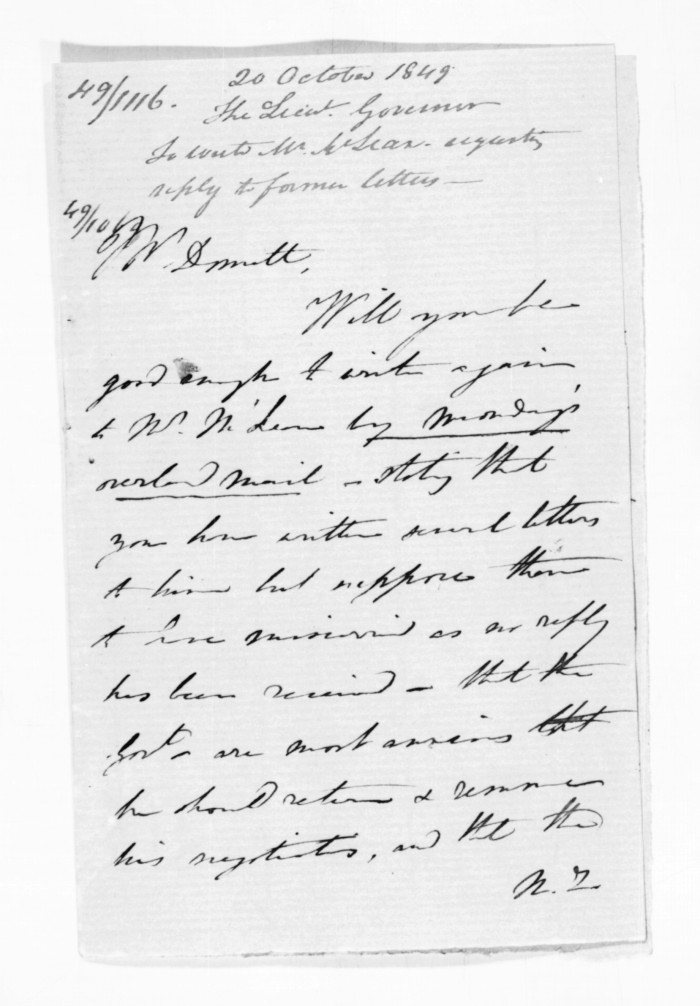 49/1116.
20 October 1849
The Lieut. Governor
To write Mr. McLean - requesting
reply to former letters -
49/1069
Mr Domett,
Will you be
good enough to write again
to Mr. McLean by Monday's
overland mail - stating that
you have written several letters
to him but suppose them
to have miscarried as no reply
has been received - that the
Govt. are most anxious that
he should return & resume
his negotiations, and that the
N. Z.